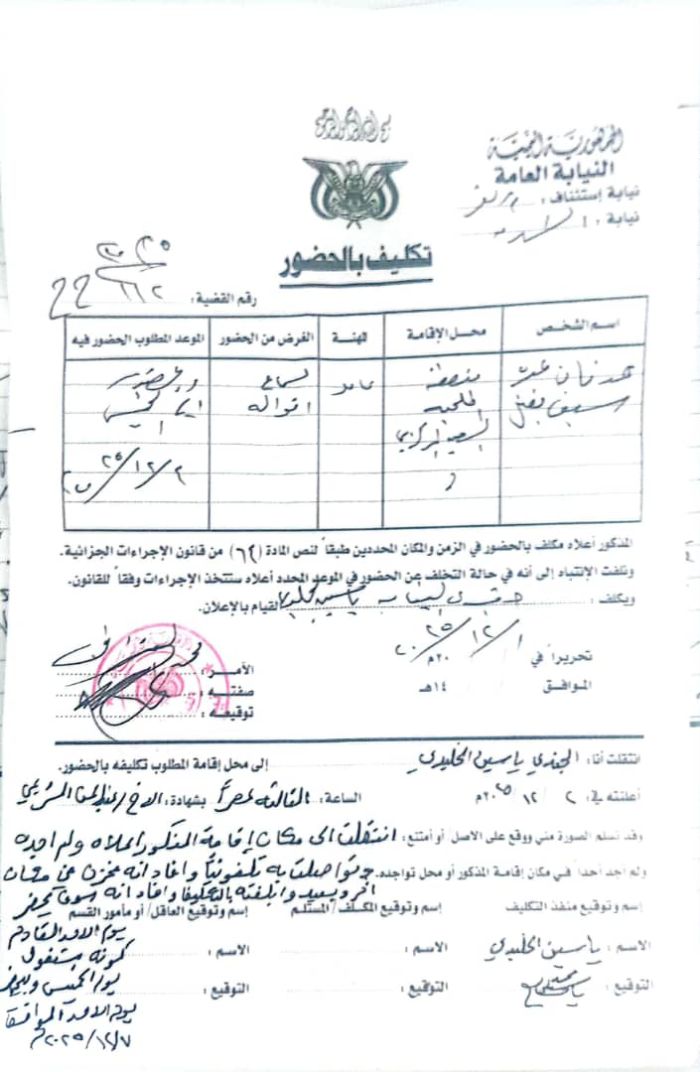 بسم الله الرحمن الرحيم
الجمهورية اليمنية
النيابة العامة
نيابة إستئناف :
نيابة :
تكليف بالحضور
٢٠٢٥
رقم القضية :
اسم الشخص
محل الإقامة
المهنة
الغرض من الحضور
الموعد المطلوب الحضور فيه
عدنان عبده سيف
منطقة
لسماع اقواله
الخميس
المذكور أعلاه مكلف بالحضور في الزمن والمكان المحددين طبقاً لنص المادة (٦٤) من قانون الإجراءات الجزائية.
ونلفت الإنتباه إلى أنه في حالة التخلف عن الحضور في الموعد المحدد أعلاه ستتخذ الإجراءات وفقاً للقانون.
ويكلف : ياسين القيام بالإعلان.
تحريراً في ١/١٢/٢٠٢٥ ٢٠م
الموافق ١٤هـ
الآمر :
صفته :
توقيعه :
انتقلت أنا : الجندي ياسين الخليدي إلى محل إقامة المطلوب تكليفه بالحضور.
أعلنته في : ٢/١٢/٢٠٢٥م الساعة : الثالثة عصراً بشهادة : الاخ /
وقد تسلم الصورة مني ووقع على الأصل/ أو أمتنع : انتقلت الى مكان إقامة المذكور اعلاه ولم اجده
ولم اجد أحداً في مكان إقامة المذكور أو محل تواجده. وتواصلت به تلفونياً وافاد انه مخزن في مكان
اخر وبعيد وابلغته بالتكليف وافاد انه سوف يحضر
اسم وتوقيع منفذ التكليف
إسم وتوقيع المكلف/ المستلم
إسم وتوقيع العاقل/ أو مأمور القسم
يوم الاحد القادم
الاسم : ياسين الخليدي
الاسم :
الاسم :
كونه مشغول
التوقيع :
التوقيع :
التوقيع :
يوم الخميس
يوم الاحد الموافق
٢٠٢٥/١٢/٧م